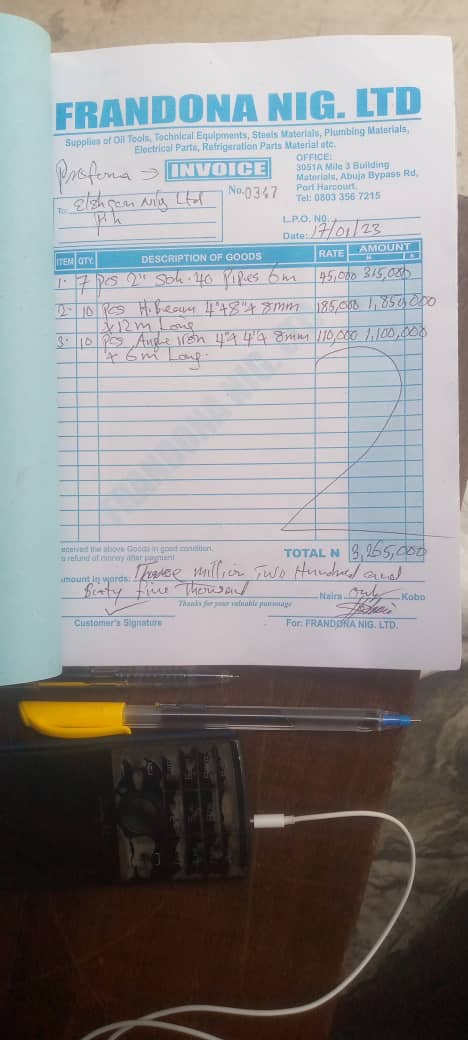 FRANDONA NIG. LTD
Supplies of Oil Tools, Technical Equipments, Steels Materials, Plumbing Materials,
Electrical Parts, Refrigeration Parts Material etc.
Proforma → INVOICE
No. 0347
OFFICE:
3051A Mile 3 Building
Materials, Abuja Bypass Rd,
Port Harcourt.
Tel: 0803 356 7215
To: Nig Ltd
L.P.O. NO.
Date: 17/01/23
ITEM QTY. DESCRIPTION OF GOODS RATE AMOUNT
N K
1. 7 pcs 2" Sch. 40 Pipes 6m 45,000 315,000
2. 10 pcs H.Beam 4"x8"x8mm 185,000 1,850,000
x12m Long
3. 10 pcs Angle Iron 4"x4"x8mm 110,000 1,100,000
x 6m Long.
FRANDONA NIG.
eceived the above Goods in good condition,
s refund of money after payment
TOTAL N 3,265,000
mount in words: Three million Two Hundred and
Sixty five Thousand Naira only Kobo
Thanks for your valuable patronage
Customer's Signature For: FRANDONA NIG. LTD.